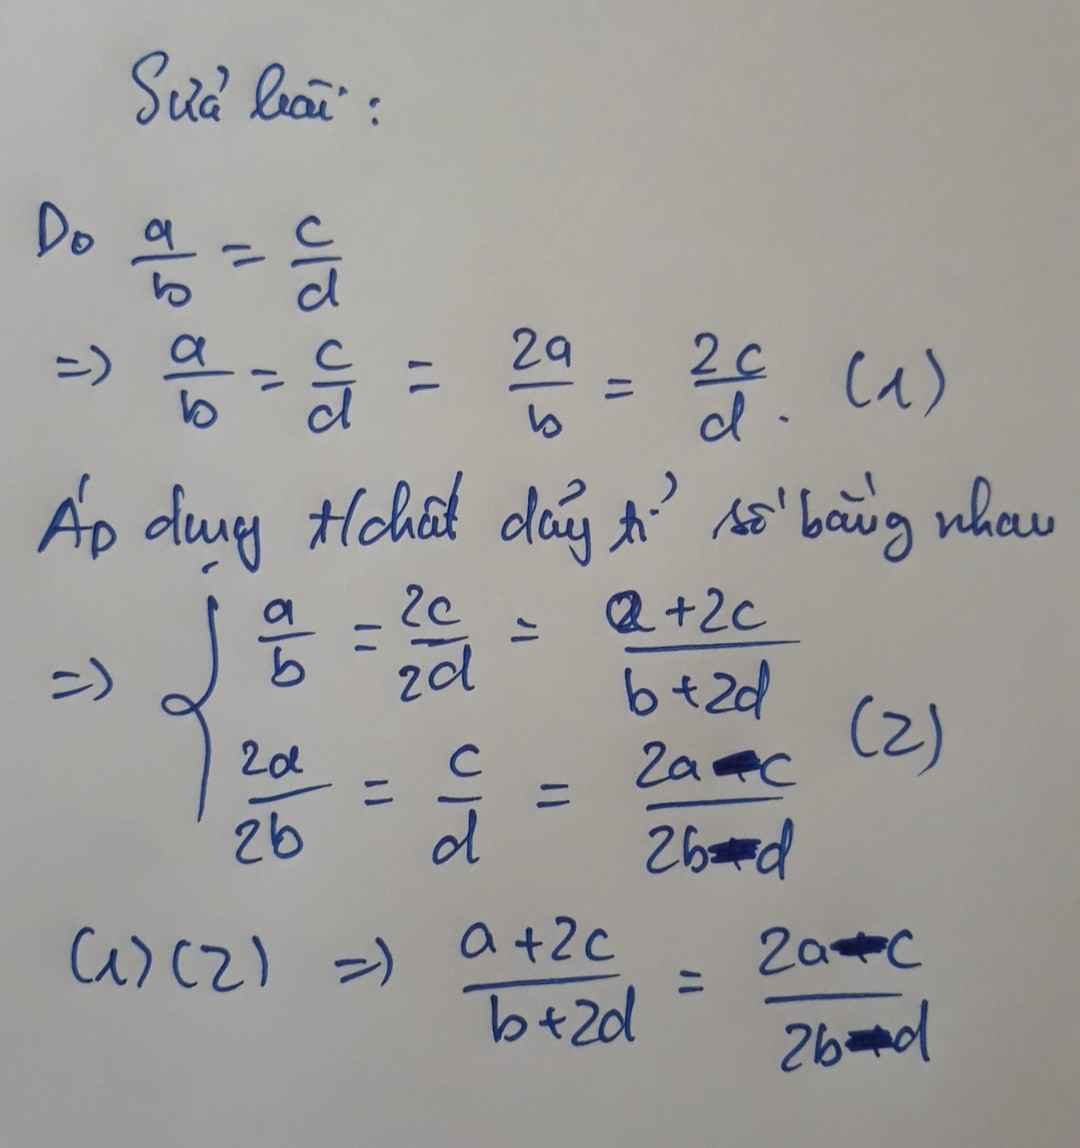 Sửa bài:
Do a/b = c/d
=> a/b = c/d = 2a/b = 2c/d. (1)
ÁD dụng t/chất dãy tỉ số bằng nhau
=> { a/b = 2c/2d = a+2c/b+2d
2a/2b = c/d = 2a-c/2b-d (2)
(1) (2) => a+2c/b+2d = 2a-c/2b-d